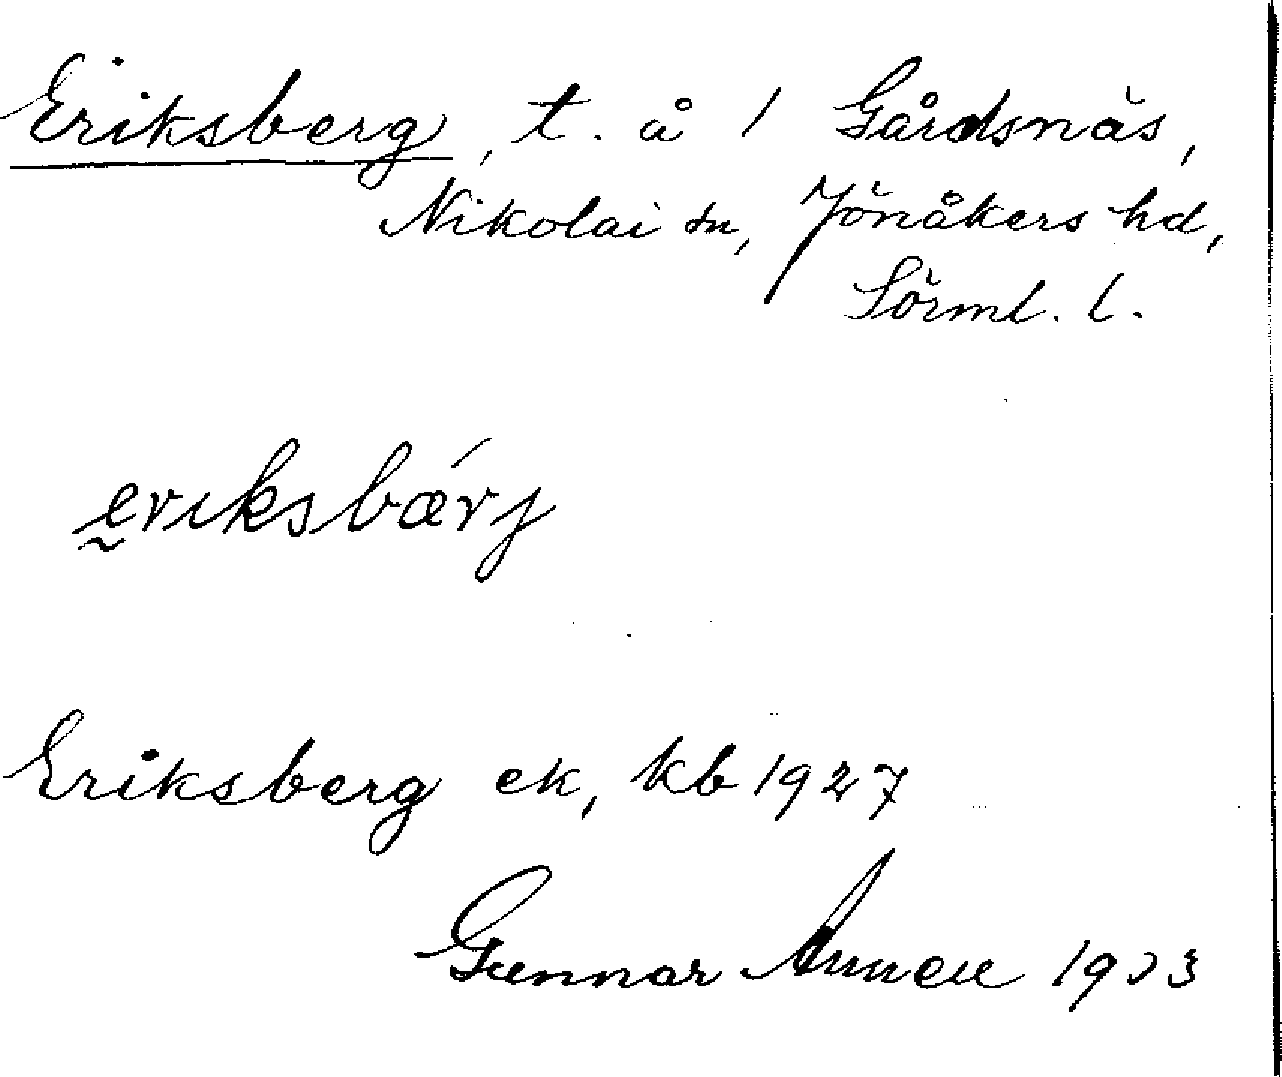 Eriksberg, t. å 1 Gårdsnäs,
Nikolai sn, Jönåkers hd,
Sörml. l.
eriksbǽrj
Eriksberg ek, kb 1927
Gunnar Annell 1933